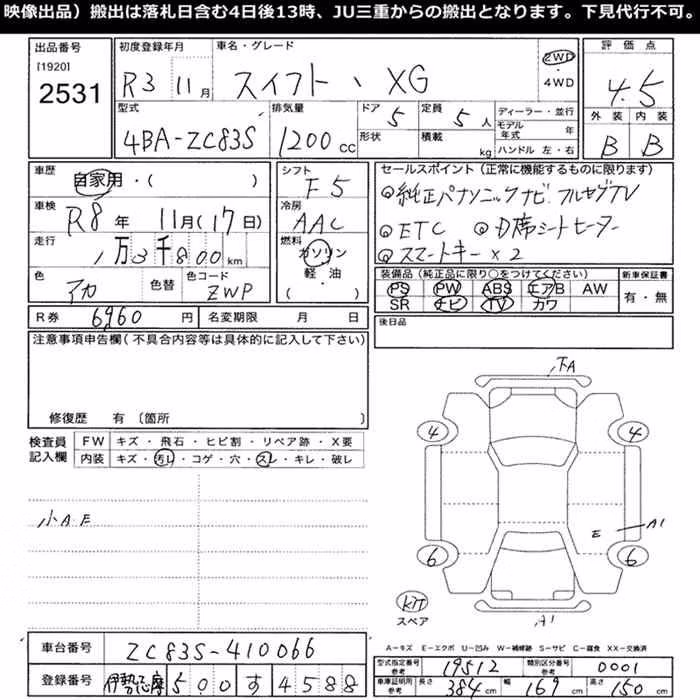 映像出品）搬出は落札日含む4日後13時、JU三重からの搬出となります。下見代行不可。
出品番号 [1920] 2531
初度登録年月 R3 11月
車名・グレード スイフト、XG
2WD・4WD
評価点 4.5
外装 B 内装 B
型式 4BA-ZC83S
排気量 1200cc
ドア 5 定員 5人
形状 積載 kg
ディーラー・並行
モデル年式 年
ハンドル 左・右
車歴 自家用・( )
車検 R8年 11月(17日)
走行 1万3千800km
色 アカ 色替 色コード ZWP
シフト F5
冷房 AAC
燃料 ガソリン・軽・油
( )
セールスポイント（正常に機能するものに限ります）
◎純正パナソニックナビ フルセグTV
◎ETC ◎D席シートヒーター
◎スマートキー×2
装備品（純正品に限り○をつけてください）
PS PW ABS エアB AW
SR ナビ TV カワ
新車保証書 有・無
R券 6960円 名変期限 月 日
後日品
注意事項申告欄(不具合内容等は具体的に記入して下さい)
修復歴 有〔箇所 〕
検査員記入欄
FW キズ・飛石・ヒビ割・リペア跡・X要
内装 キズ・汚レ・コゲ・穴・スレ・キレ・破レ
小A.E
下A
4 4
E A1
6 6
KIT
スペア
A1
A－キズ E－エクボ U－凹み W－補修跡 S－サビ C－腐食 XX－交換済
車台番号 ZC83S-410066
登録番号 伊勢志摩 500 す 4588
型式指定番号 参考 19512 類別区分番号 参考 0001
車庫証明用 参考 長さ 384cm 幅 169cm 高さ 150cm